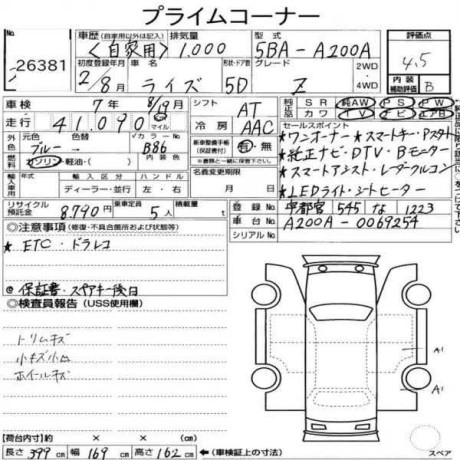 プライムコーナー
26381
車歴 (自家用以外は記入) 排気量 型式 評価点
〈自家用〉 1,000 5BA-A200A 4,5
初度登録年月 車名 形状・ドア数 グレード 2WD・4WD 内装補助評価
2/8月 ライズ 5D Z B
車検 7年 8/9月 シフト AT
純正品 SR 純AW PS PW
カワ TV ナビ エアB
走行 41090 マイル 冷房 AAC
セールスポイント
外色 元色 色替 カラーNo
ブルー → B86
新車整備手帳(保証書付) 有・無
*ワンオーナー *スマートキー・Pスタート
*純正ナビ・DTV・Bモニター
燃料 ガソリン・軽油・( )
名義変更期限
*スマートアシスト・レーダークルコン
輸入車用 輸入区分 ハンドル
ディーラー・並行 左・右
月 日
*LEDライト・シートヒーター
リサイクル預託金 8,790円 乗車定員 5人 積載量 t
登録 宇都宮 545 な 1223
車台 A200A-0069254
シリアルNo
◎注意事項 (修復・不具合箇所および状態等)
*ETC・ドラレコ
◎保証書・スペアキー後日
◎検査員報告 (USS使用欄)
トリムキズ
小キズ小凹
ホイールキズ
A1
A1
【荷台内寸】約 × × cm
長さ 399 cm 幅 169 cm 高さ 162 cm ←(車検証上の寸法)
スペア